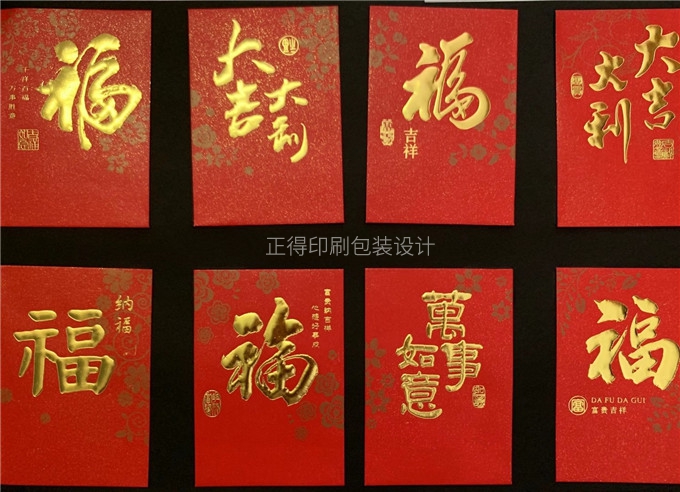 福
千祥百福
万事胜意
大吉
大利
福
吉祥
大吉
大利
正得印刷包装设计
福
纳福
福
富贵纳吉祥
心想好事成
萬事
如意
福
DA FU DA GUI
富贵吉祥